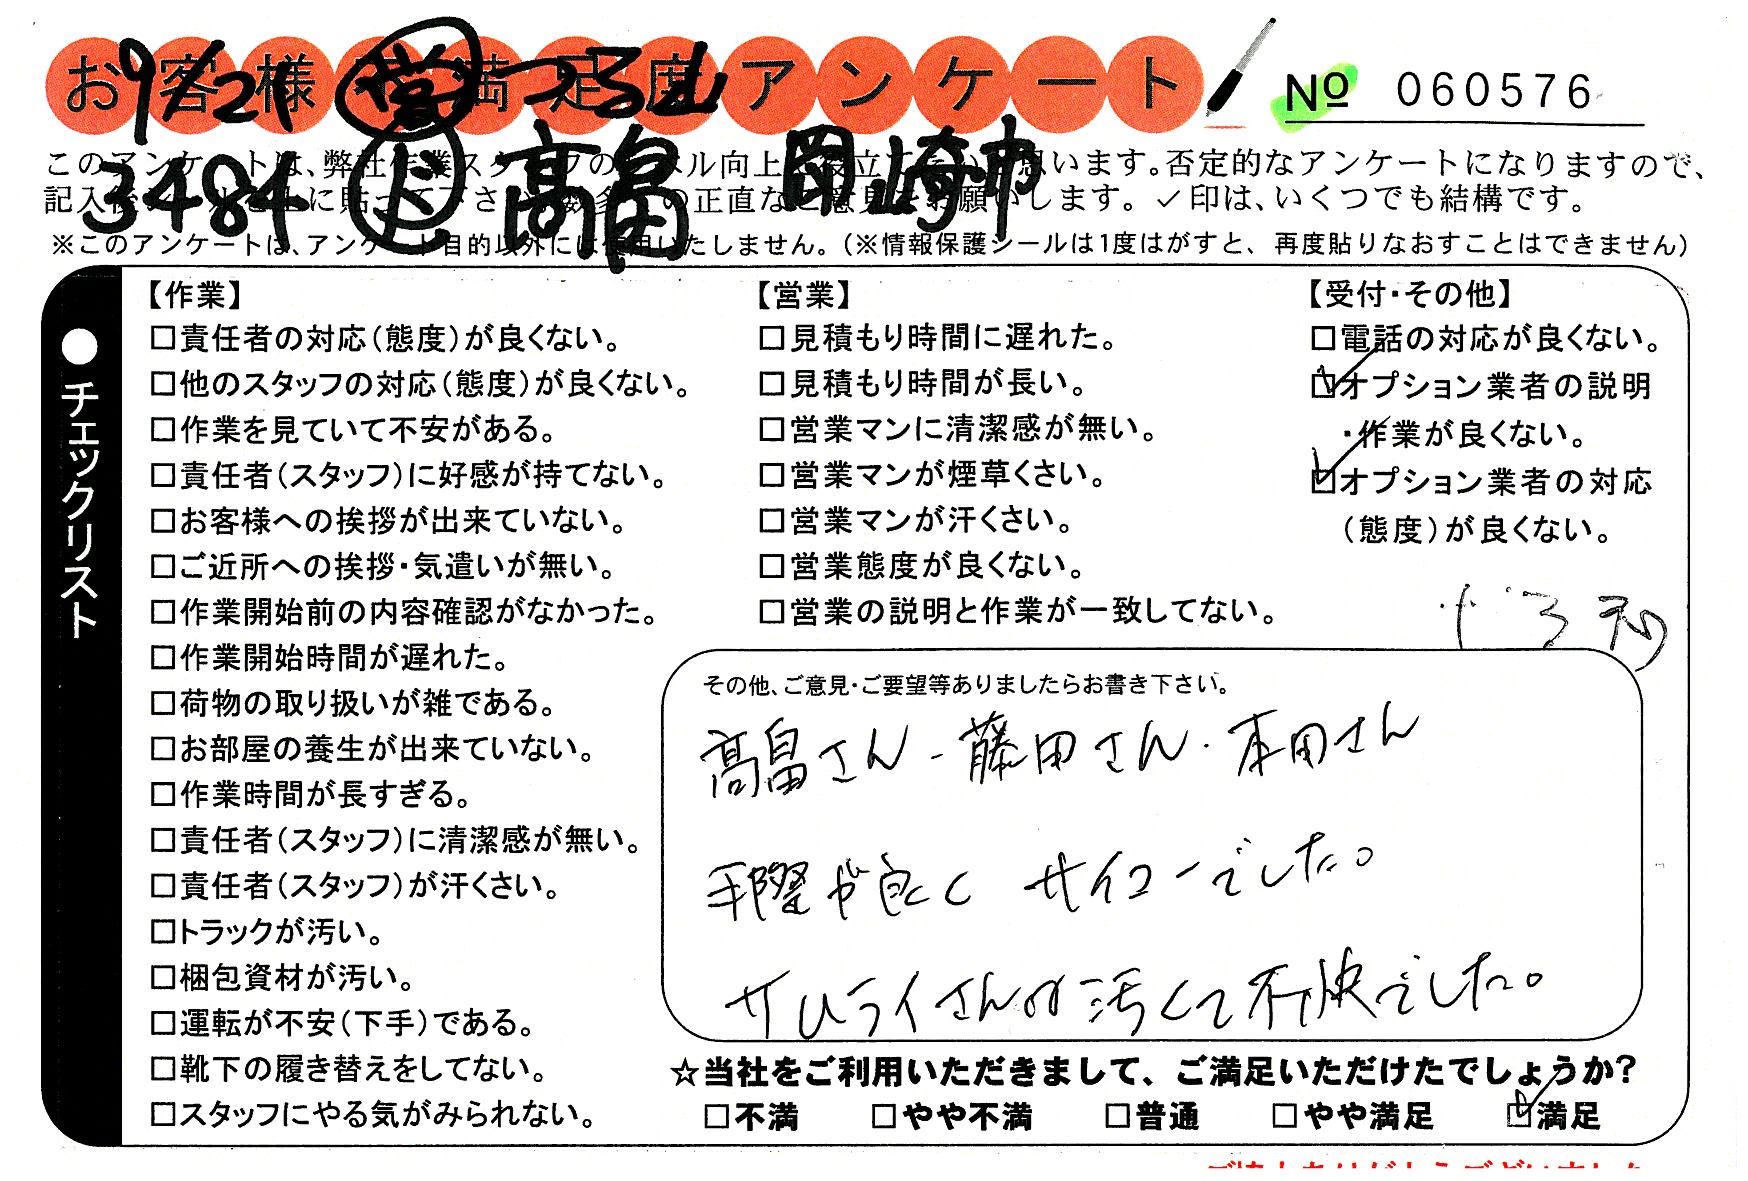 お客様不満足度アンケート
No 060576
9/21 営 つる山
3484 ト 高畠 岡崎市
このアンケートは、弊社作業スタッフのレベル向上に役立てたいと思います。否定的なアンケートになりますので、
記入後シールを上に貼って下さい。数多くの正直なご意見をお願いします。✓印は、いくつでも結構です。
※このアンケートは、アンケート目的以外には使用いたしません。(※情報保護シールは1度はがすと、再度貼りなおすことはできません)
●チェックリスト
【作業】
□責任者の対応(態度)が良くない。
□他のスタッフの対応(態度)が良くない。
□作業を見ていて不安がある。
□責任者(スタッフ)に好感が持てない。
□お客様への挨拶が出来ていない。
□ご近所への挨拶・気遣いが無い。
□作業開始前の内容確認がなかった。
□作業開始時間が遅れた。
□荷物の取り扱いが雑である。
□お部屋の養生が出来ていない。
□作業時間が長すぎる。
□責任者(スタッフ)に清潔感が無い。
□責任者(スタッフ)が汗くさい。
□トラックが汚い。
□梱包資材が汚い。
□運転が不安(下手)である。
□靴下の履き替えをしてない。
□スタッフにやる気がみられない。
【営業】
□見積もり時間に遅れた。
□見積もり時間が長い。
□営業マンに清潔感が無い。
□営業マンが煙草くさい。
□営業マンが汗くさい。
□営業態度が良くない。
□営業の説明と作業が一致してない。
【受付・その他】
□電話の対応が良くない。
☑オプション業者の説明
・作業が良くない。
☑オプション業者の対応
(態度)が良くない。
その他、ご意見・ご要望等ありましたらお書き下さい。
高畠さん・藤田さん・本田さん
手際が良く サイコーでした。
サムライさんが汚くて不快でした。
☆当社をご利用いただきまして、ご満足いただけたでしょうか?
□不満 □やや不満 □普通 □やや満足 ☑満足